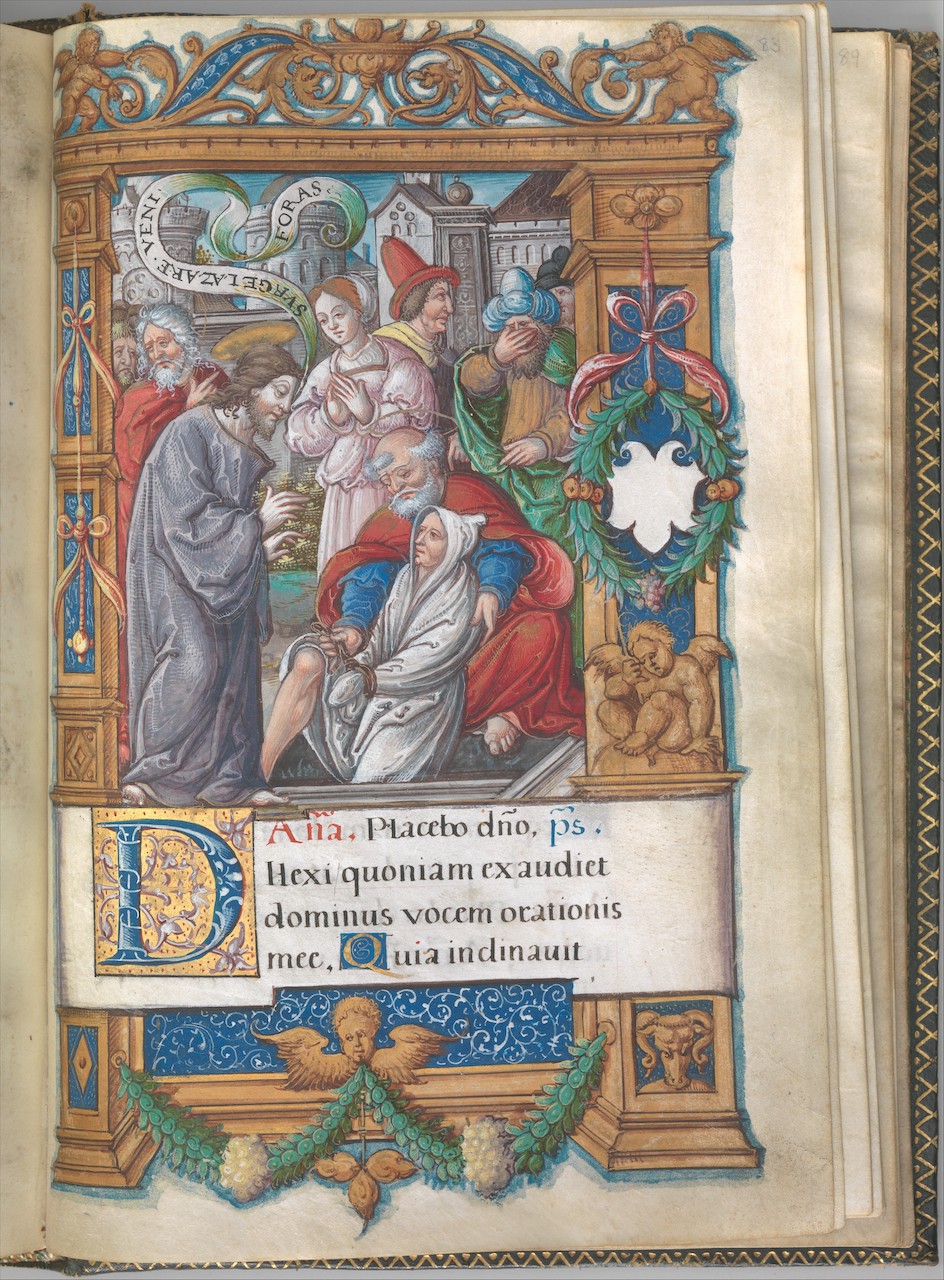 83
89
SVRGE LAZARE · VENI · FORAS ·
Aña. Placebo dño, ps.
DIlexi quoniam exaudiet
dominus vocem orationis
mee, Quia inclinauit